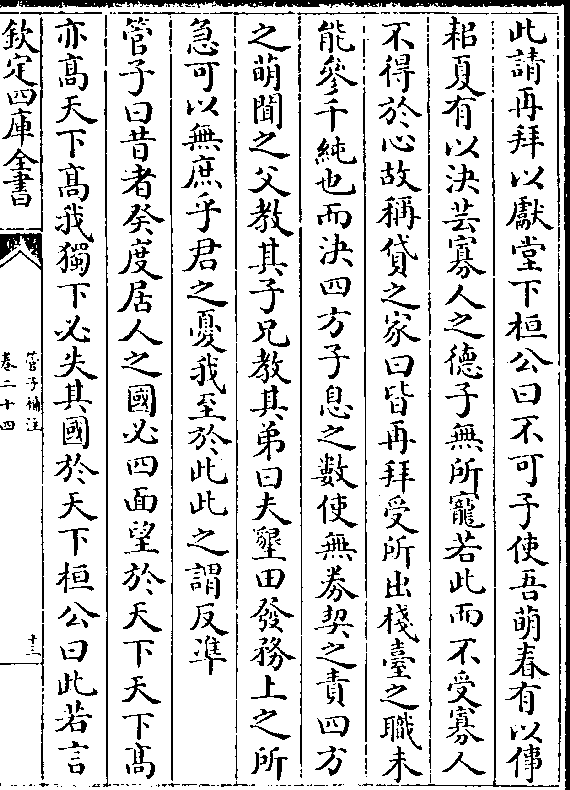 此請再拜以獻堂下桓公曰不可子使吾萌春有以倳
耜夏有以決芸寡人之德子無所寵若此而不受寡人
不得於心故稱貸之家曰皆再拜受所出棧臺之職未
能參千純也而決四方子息之數使無券契之責四方
之萌聞之父教其子兄教其弟曰夫墾田發務上之所
急可以無庶乎君之憂我至於此此之謂反準
管子曰昔者癸度居人之國必四面望於天下天下髙
亦髙天下髙我獨下必失其國於天下桓公曰此若言
欽定四庫全書
管子補注
卷二十四
十三